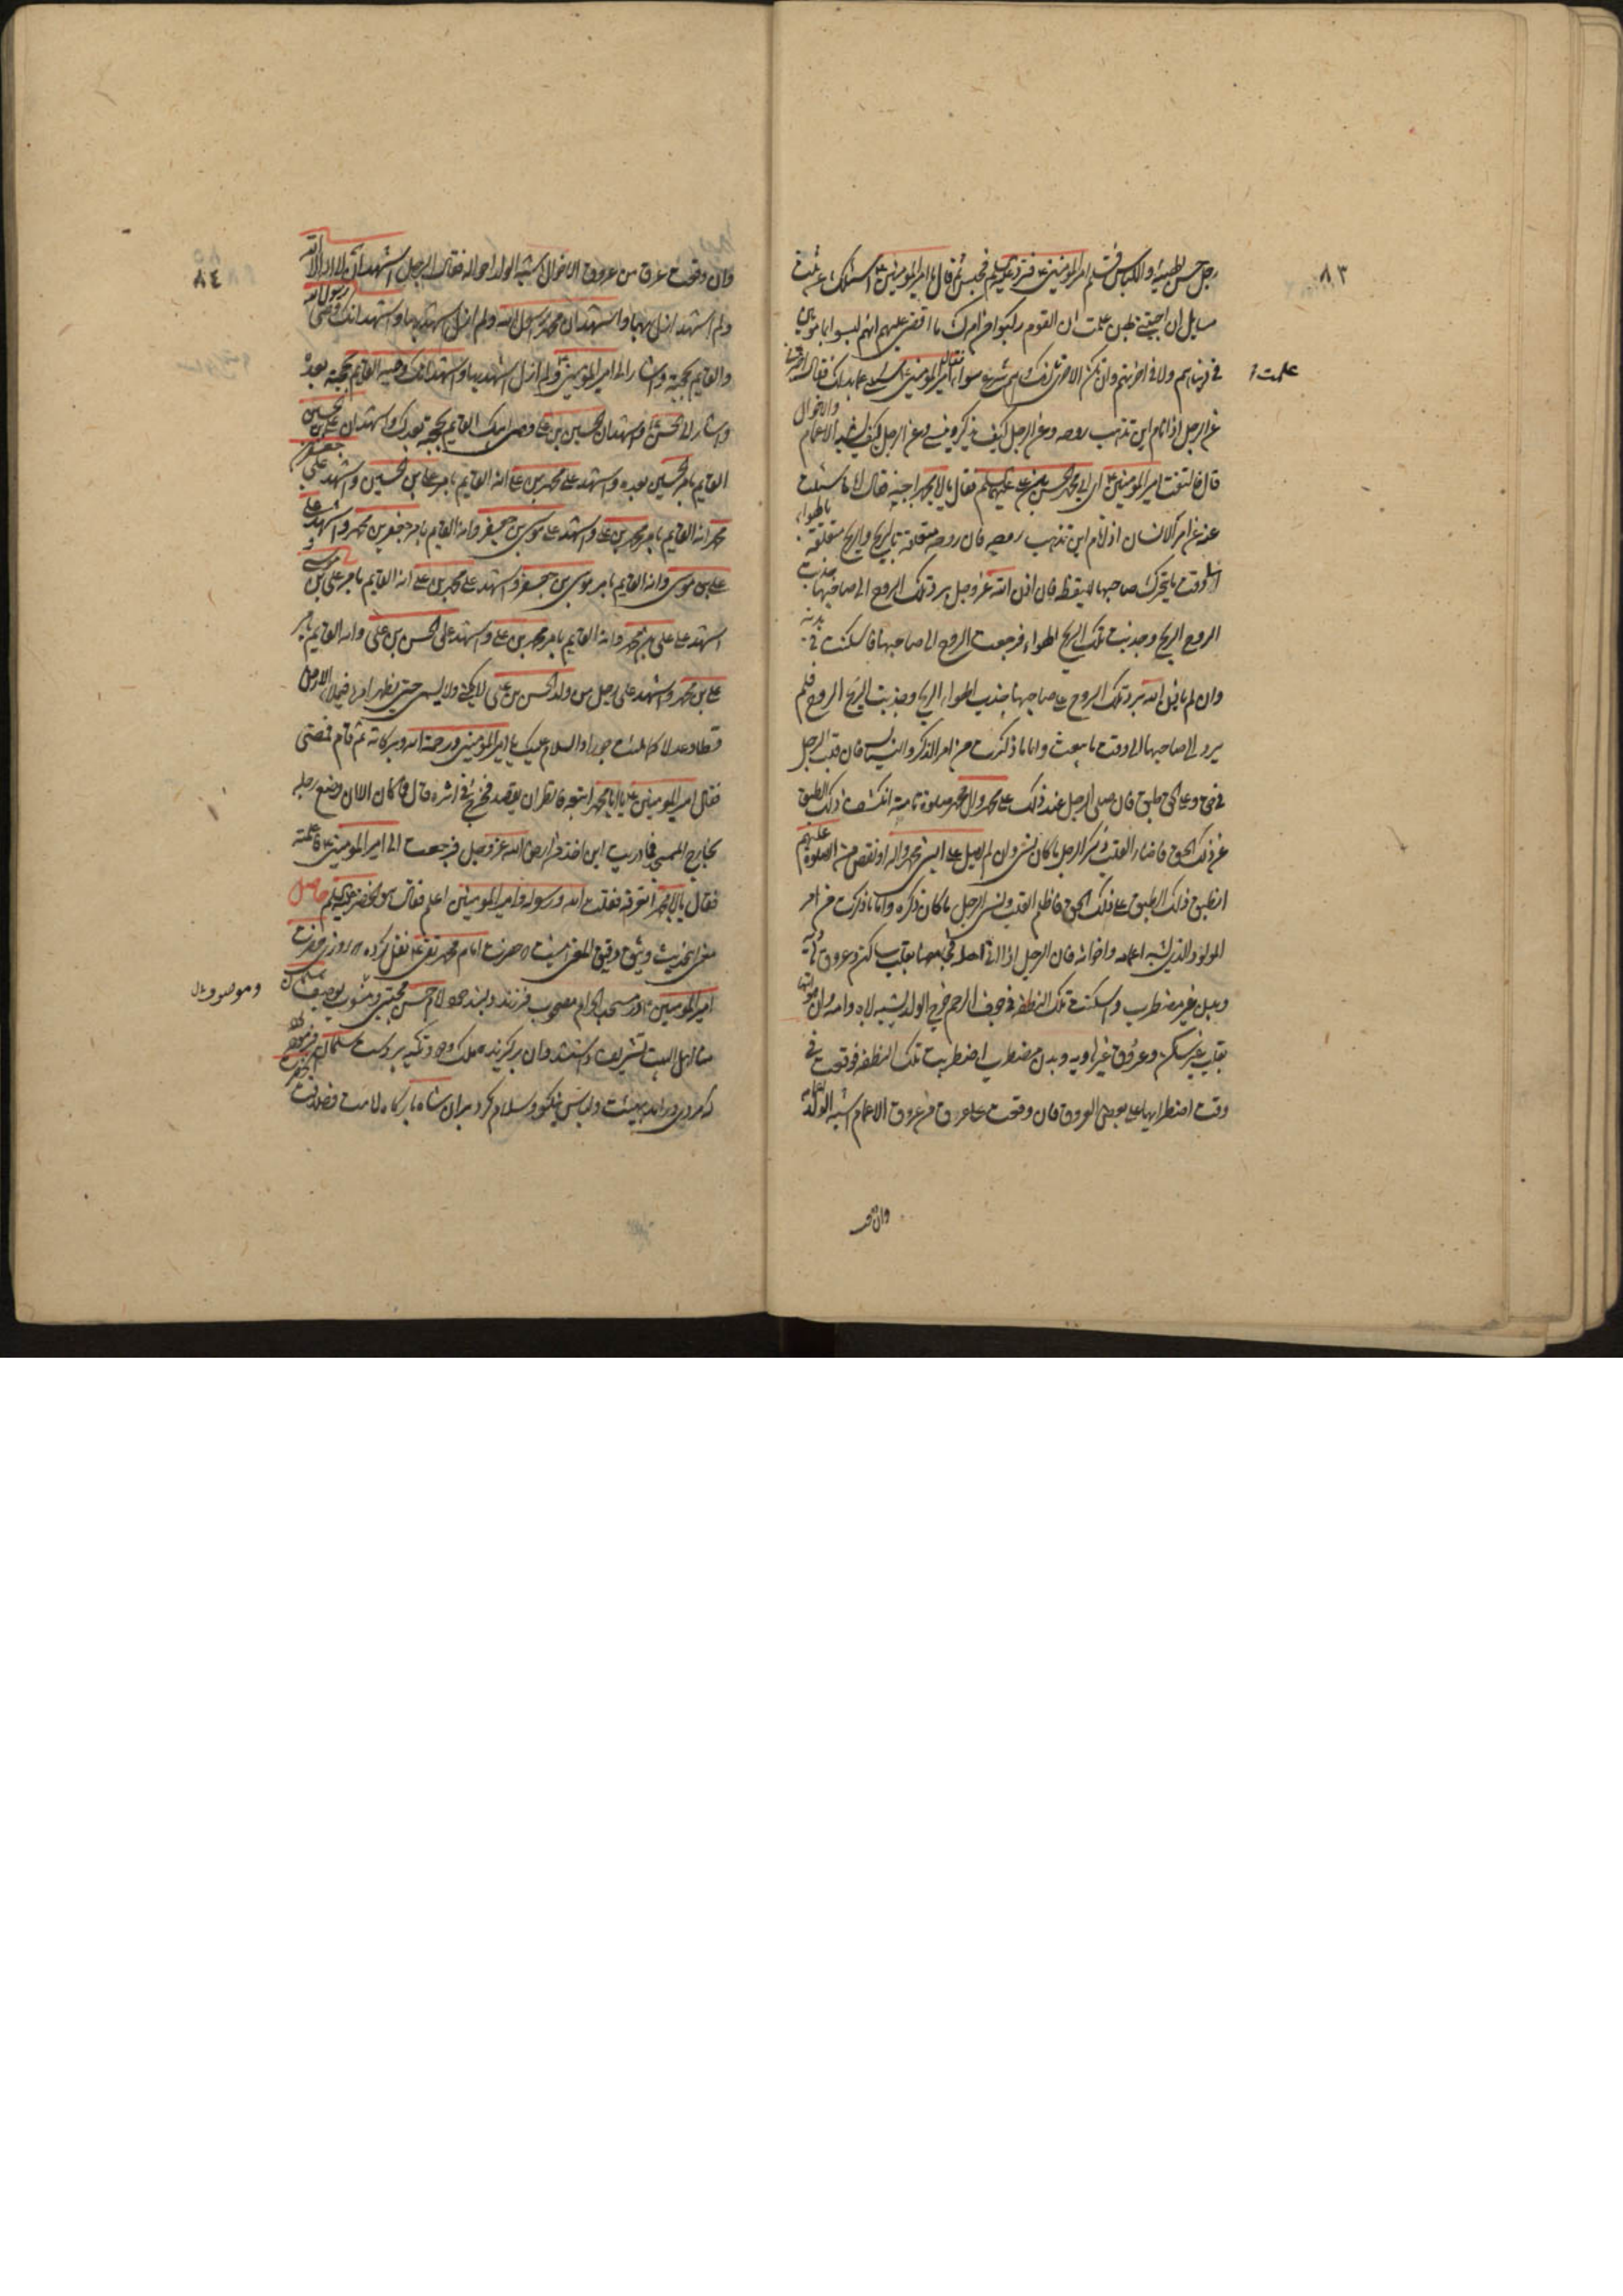 ٨٣
رجل حسن الهيئة واللباس فسلم امير المؤمنين ع فرد عليه السلم فجلس ثم قال يا امير المؤمنين ع اسئلك عن ثلث
مسايل ان اجبتني بهن علمت ان القوم ركبوا من امرك ما اقضى عليهم انهم ليسوا بمامونين
في دنياهم ولا في اخرتهم وان تكن الاخرى علمت انك وهم شرع سواء فقال له امير المؤمنين ع سلني عما بدا لك فقال اخبرني
علمت
عن الرجل اذا نام اين تذهب روحه وعن الرجل كيف يذكر وينسي وعن الرجل كيف يشبه الاعمام والاخوال
قال فالتفت امير المؤمنين ع الى ابي محمد الحسن بن علي عليهما السلم فقال يا ابا محمد اجبه فقال اما ما سئلت
عنه من امر الانسان اذا نام اين تذهب روحه فان روحه متعلقة بالريح والريح متعلقة بالهواء
الى وقت ما يتحرك صاحبها لليقظة فان اذن الله عز وجل برد تلك الروح الى صاحبها جذبت
الروح الريح وجذبت تلك الريح الهواء فرجعت الروح الى صاحبها فاسكنت في بدنه
وان لم ياذن الله برد تلك الروح على صاحبها جذب الهواء الريح وجذبت الريح الروح فلم
يرد الى صاحبها الى وقت ما يبعث واما ما ذكرت من امر الذكر والنسيان فان قلب الرجل
في حق وعلى الحق طبق فان صلى الرجل عند ذلك على محمد وال محمد صلوة تامة انكشف ذلك الطبق
عن ذلك الحق فاضاء القلب وذكر الرجل ما كان نسي وان لم يصل على النبي محمد واله او نقص من الصلوة عليهم
انطبق ذلك الطبق على ذلك الحق فاظلم القلب ونسي الرجل ما كان ذكره واما ما ذكرت من امر
المولود الذي يشبه اعمامه واخواله فان الرجل اذا اتى اهله فجامعها بقلب ساكن وعروق هادية
وبدن غير مضطرب واسكنت تلك النطفة في جوف الرحم خرج الولد يشبه اباه وامه وان هو اتيها
بقلب غير ساكن وعروق غير هادية وبدن مضطرب اضطربت تلك النطفة فوقعت في
وقت اضطرابها على بعض العروق فان وقعت على عرق من عروق الاعمام اشبه الولد اعمامه
وان وقعت
٨٤
وان وقعت على عرق من عروق الاخوال اشبه الولد اخواله فقال الرجل اشهد ان لا اله الا الله
ولم ازل اشهد بها واشهد ان محمدا رسول الله ولم ازل اشهد بها واشهد انك وصي رسول الله
والقايم بحجته واشار الى امير المؤمنين ع ولم ازل اشهد بها واشهد انك وصيه القايم بحجته بعده
واشار الى الحسن ع واشهد ان الحسين بن علي وصي ابيك القايم بحجته بعدك واشهد ان علي بن الحسين
القايم بامر الحسين بعده واشهد على محمد بن علي انه القايم بامر علي بن الحسين واشهد على جعفر بن
محمد انه القايم بامر محمد بن علي واشهد على موسى بن جعفر وانه القايم بامر جعفر بن محمد واشهد على
علي بن موسى وانه القايم بامر موسى بن جعفر واشهد على محمد بن علي انه القايم بامر علي بن موسى و
اشهد على علي بن محمد وانه القايم بامر محمد بن علي واشهد على الحسن بن علي وانه القايم بامر
علي بن محمد واشهد على رجل من ولد الحسن بن علي لا يكنى ولا يسمى حتى يظهر امره فيملا الارض
قسطا وعدلا كما ملئت جورا والسلام عليك يا امير المؤمنين ورحمة الله وبركاته ثم قام فمضى
فقال امير المؤمنين ع يا ابا محمد اتبعه فانظر ان يقصد فخرج في اثره قال فما كان الا ان وضع رجله
بخارج المسجد فما دريت اين اخذ من ارض الله عز وجل فرجعت الى امير المؤمنين ع فاعلمته
فقال يا ابا محمد اتعرفه فقلت الله ورسوله وامير المؤمنين اعلم فقال هو الخضر عليه السلم حاصل
معنى اين حديث وثيق دقيق المعنى اينست كه حضرت امام محمد تقي ع نقل كرده كه روزي حضرت
امير المؤمنين ع در مسجد الحرام مصحوب فرزند دلبند خود امام حسن مجتبى ومنسوب بوصيف سلمان
منا اهل البيت تشريف داشتند وان بركزيده ملك ودود تكيه بر دست سلمان فرموده
كه مردي در امد بهيئت ولباس نيكو وسلام كرد بران شاه باركاه لامت